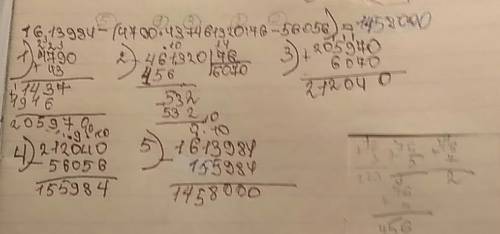 16.13984-(4790·43+461320:76-56056)=1458000
1) 4790
+ 43
1437
1916
205970
2) -461320 | 76
456 6070
532
532
0
3) +205970
6070
212040
4) -212040
56056
155984
5) -1613984
155984
1458000
456